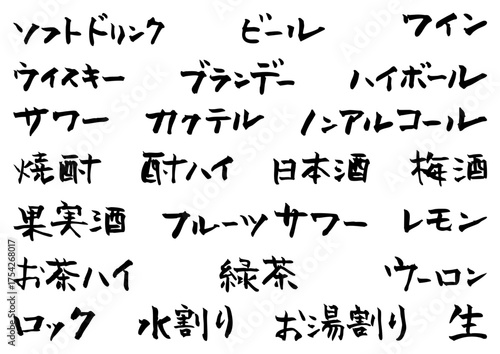 ソフトドリンク ビール ワイン
ウイスキー ブランデー ハイボール
サワー カクテル ノンアルコール
焼酎 酎ハイ 日本酒 梅酒
果実酒 フルーツサワー レモン
お茶ハイ 緑茶 ウーロン
ロック 水割り お湯割り 生
Adobe Stock | #1754268017